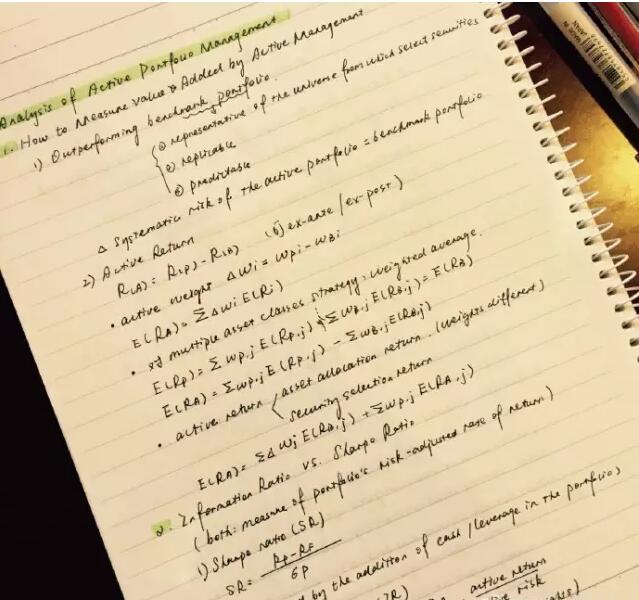 Analysis of Active Portfolio Management
1. How to Measure Value Added by Active Management
1) Outperforming benchmark portfolio.
① representative of the universe from which select securities
② replicable
③ predictable
△ Systematic risk of the active portfolio = benchmark portfolio
2) Active Return
R(A) = R(P) - R(B) (by ex-ante / ex-post)
• active weight ΔWi = WPi - WBi
E(RA) = ΣΔWi E(Ri)
• If multiple asset classes strategy: weighted average.
E(RP) = ΣWP,j E(RP,j) ; ΣWB,j E(RB,j) = E(RB)
E(RA) = ΣWP,j E(RP,j) - ΣWB,j E(RB,j)
• active return asset allocation return. (weights different)
security selection return
E(RA) = ΣΔWj E(RB,j) + ΣWP,j E(RA,j)
2. Information Ratio vs. Sharpe Ratio
(both: measure of portfolio's risk-adjusted rate of return)
1) Sharpe ratio (SR)
SR = RP-RF
6P
by the addition of cash / leverage in the portfolio
active return
risk